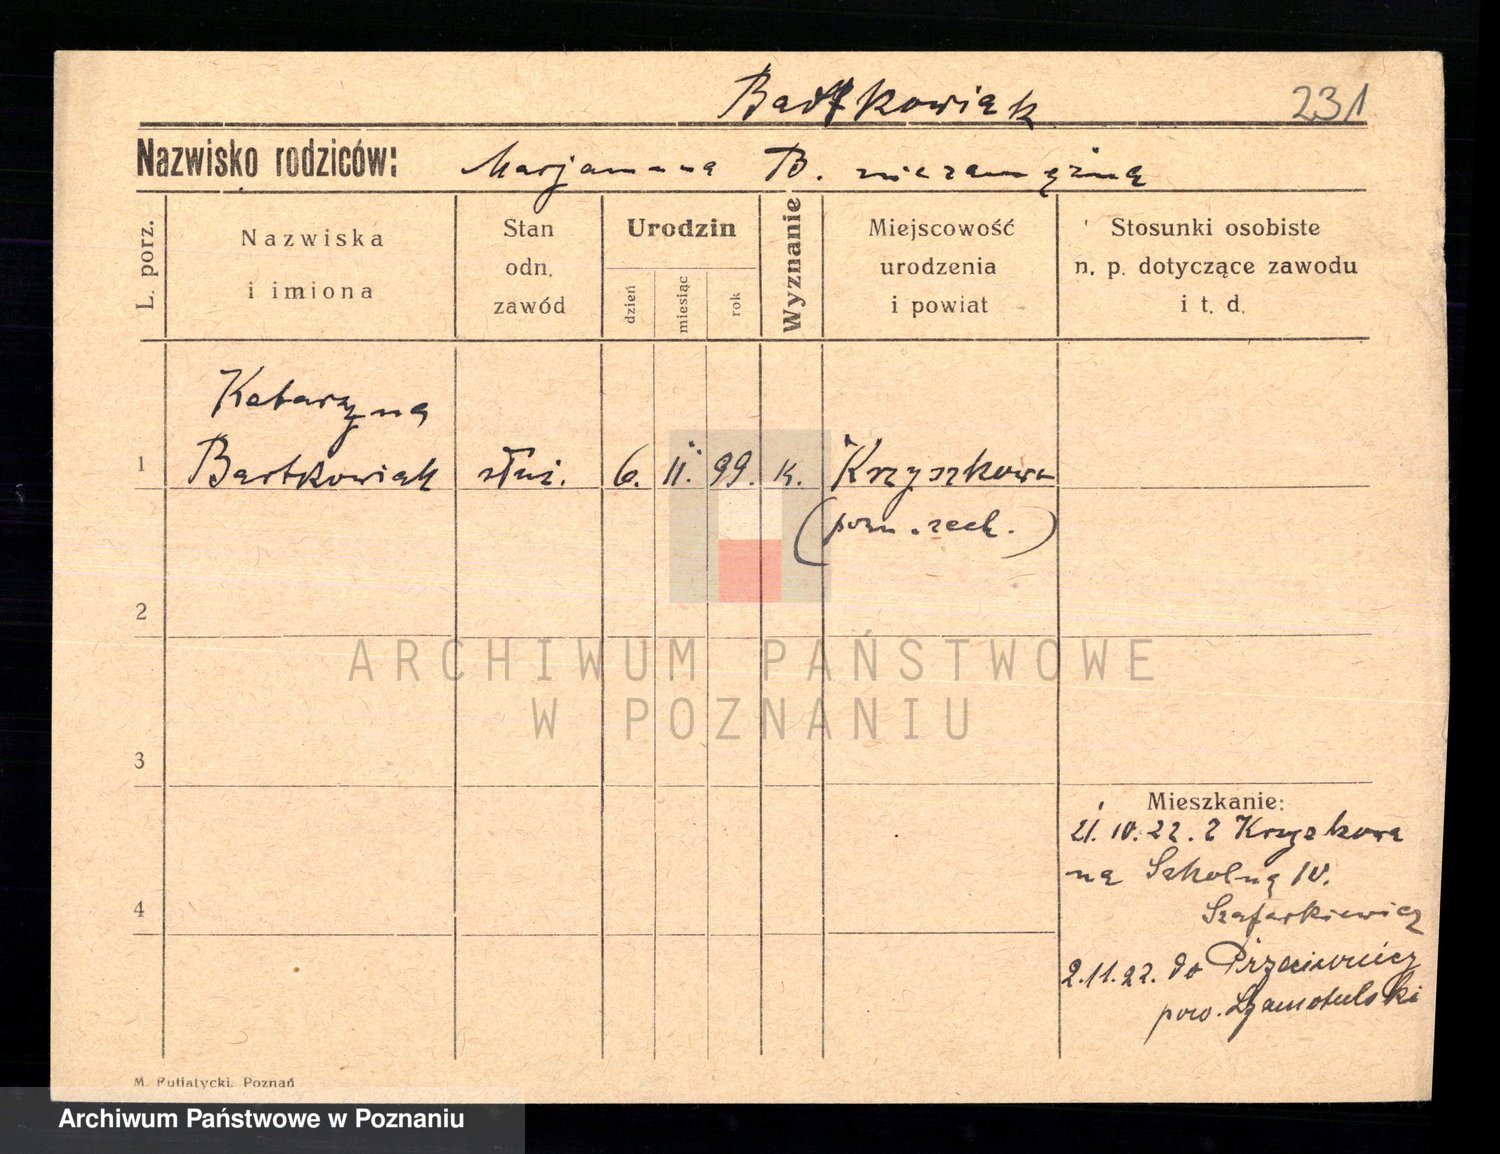 Bartkowiak 231
Nazwisko rodziców: Marjanna B. niezamężna
L. porz.
Nazwiska
i imiona
Stan
odn.
zawód
Urodzin
dzień
miesiąc
rok
Wyznanie
Miejscowość
urodzenia
i powiat
Stosunki osobiste
n. p. dotyczące zawodu
i t. d.
Katarzyna
1 Bartkowiak służ. 6. 11. 99. k. Krzyszkowo
(pozn. zach.)
2
3
4
Mieszkanie:
21. 10. 22. z Krzyszkowa
na Szkolną 10.
Szafarkiewicz
2. 11. 22. do Przeciwnicy
pow. Szamotulski
M. Putiatycki. Poznań
ARCHIWUM PAŃSTWOWE
W POZNANIU
Archiwum Państwowe w Poznaniu